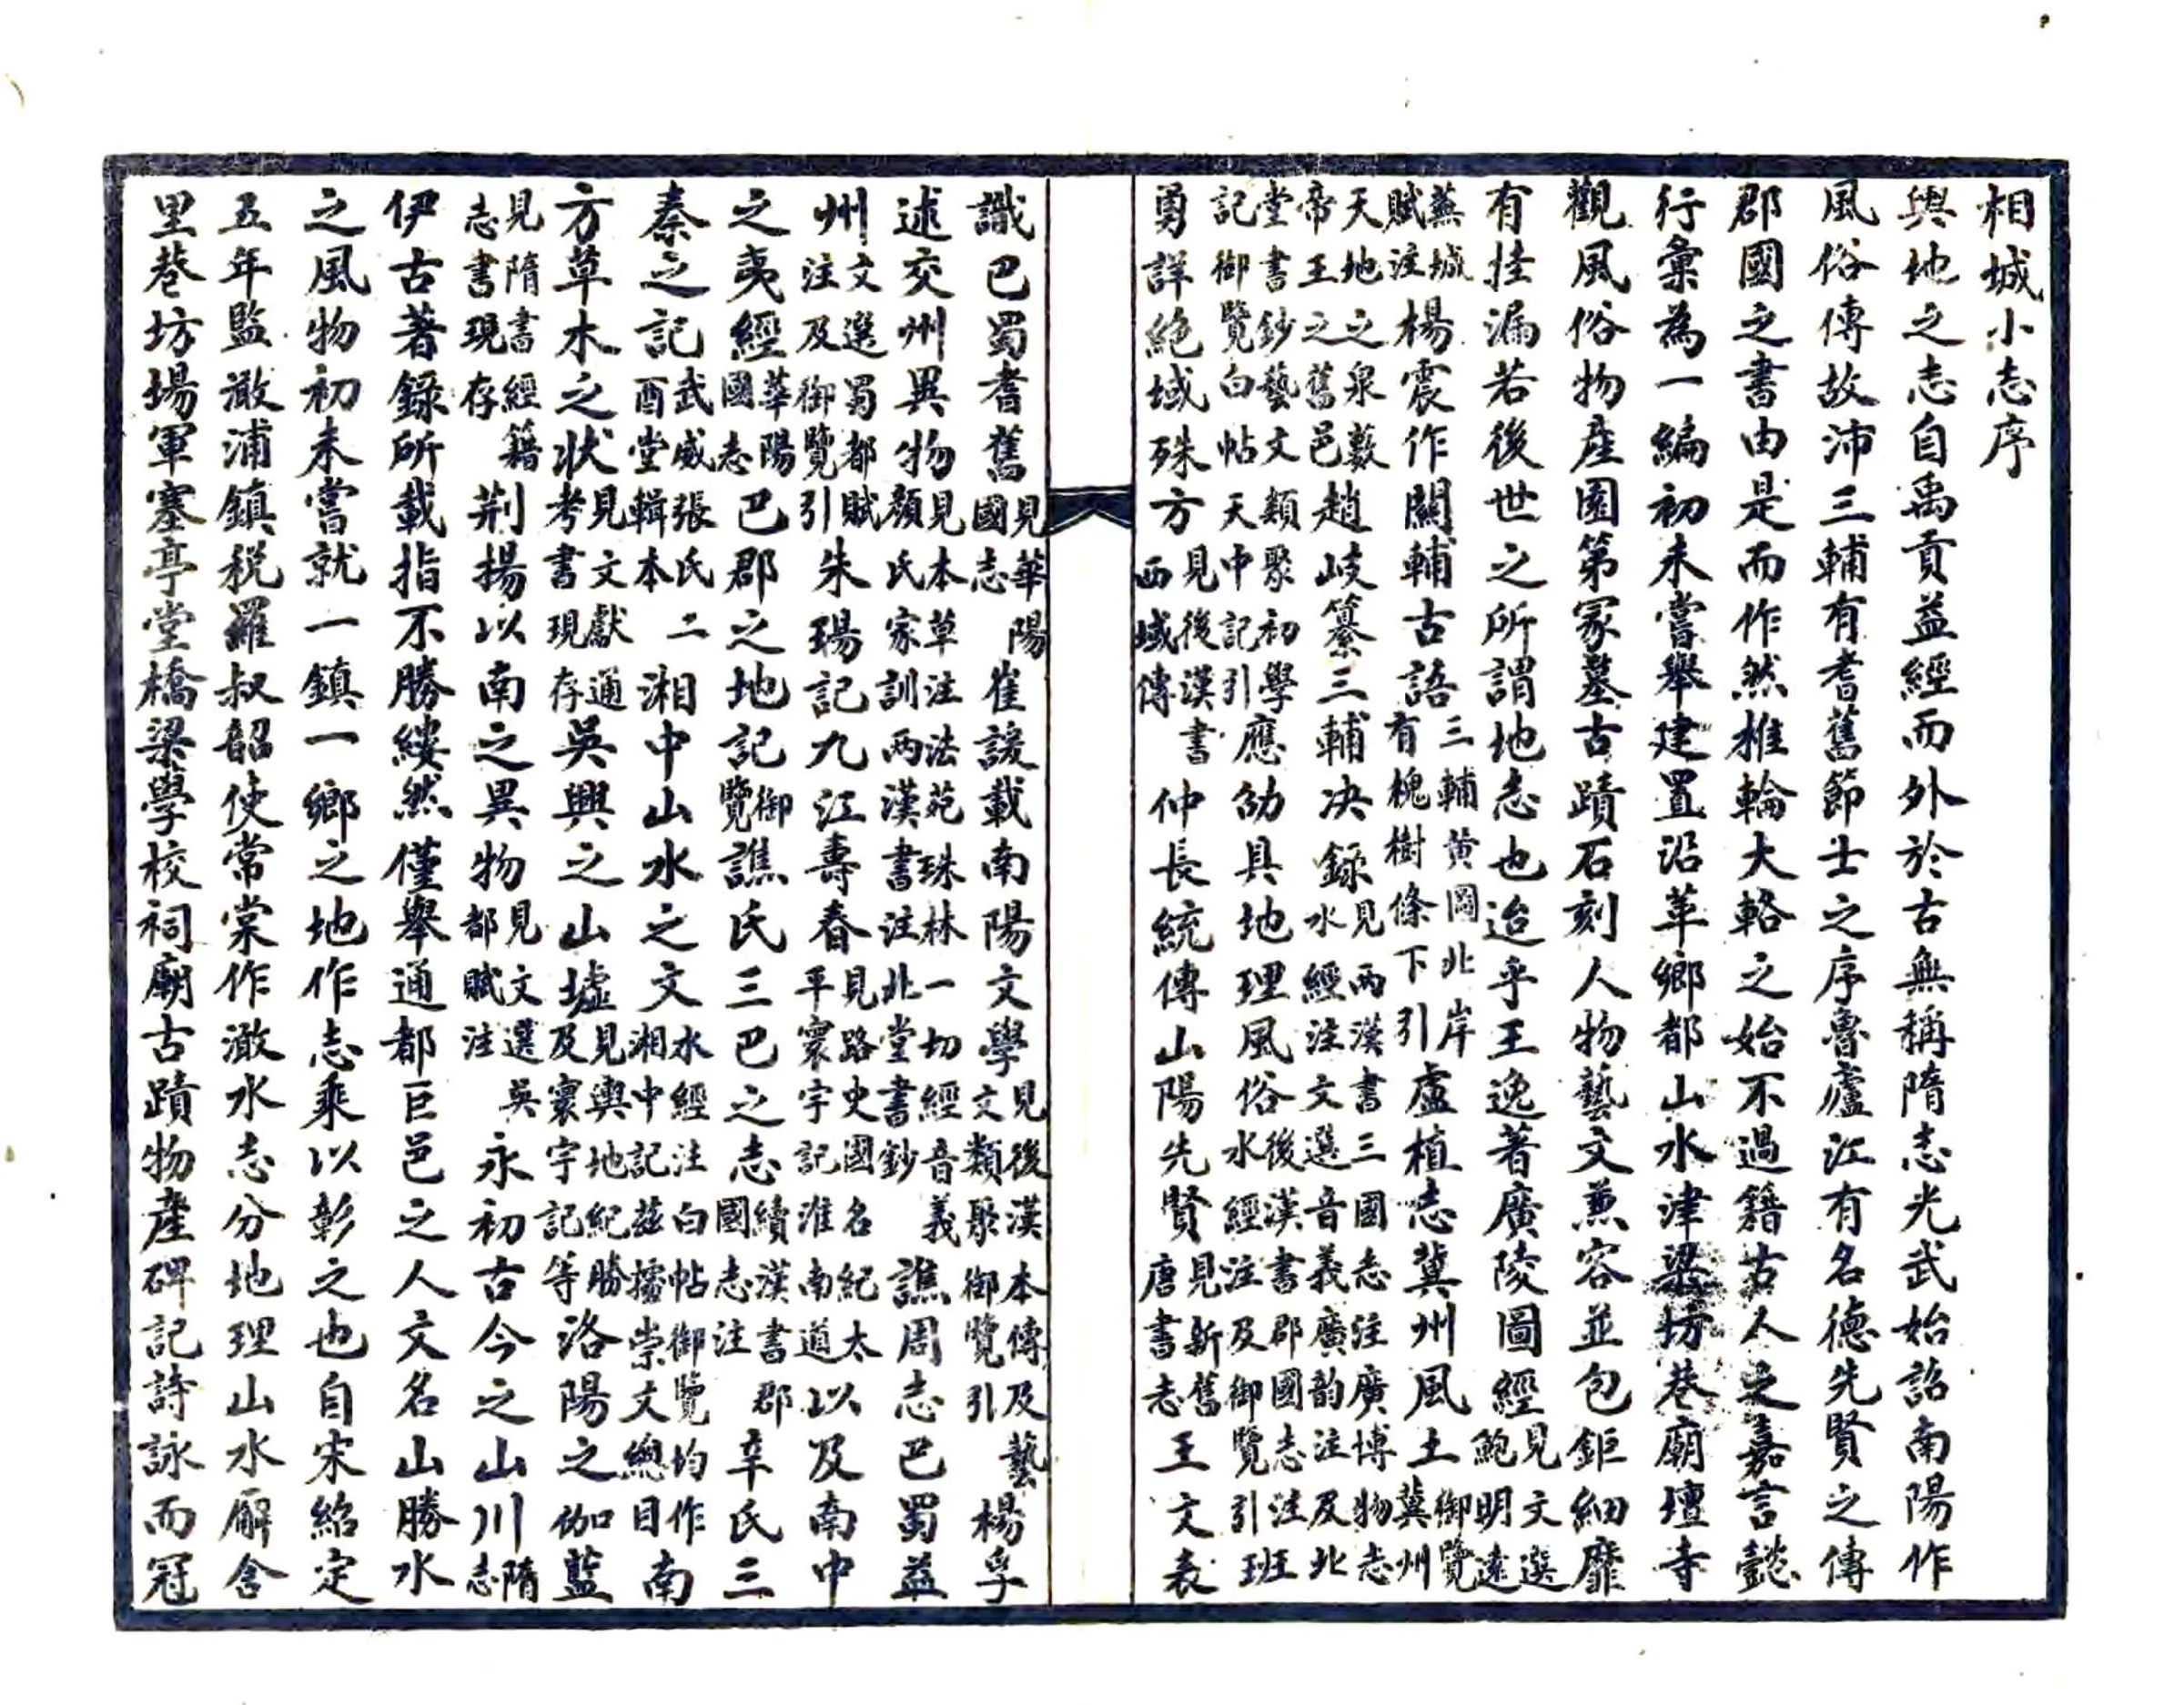 相城小志序
輿地之志自禹貢益經而外於古無稱隋志光武始詔南陽作
風俗傳故沛三輔有耆舊節士之序魯廬江有名德先賢之傳
郡國之書由是而作然椎輪大輅之始不過籍古人之嘉言懿
行彙為一編初未嘗舉建置沿革鄉都山水津梁坊巷廟壇寺
觀風俗物産園第冢墓古蹟石刻人物藝文兼容並包鉅細靡
有挂漏若後世之所謂地志也迨乎王逸著廣陵圖經見文選鮑明遠
蕪城賦注楊震作關輔古語三輔黄圖北岸有槐樹條下引盧植志冀州風土御覽冀州
天地之之泉藪帝王之舊邑趙岐纂三輔决錄見兩漢書三國志注廣博物志水經注文選音義廣韵注及北
堂書鈔藝文類聚初學記御覽白帖天中記引應劭具地理風俗後漢書郡國志注水經注及御覽引班
勇詳絶域殊方見後漢書西域傳仲長統傳山陽先賢見新舊唐書志王文表
識巴蜀耆舊見華陽國志崔諼載南陽文學見後漢本傳及藝文類聚御覽引楊孚
述交州異物見本草注法苑珠林一切經音義顏氏家訓兩漢書注北堂書鈔譙周志巴蜀益
州文選蜀都賦注及御覽引朱瑒記九江壽春見路史國名紀太平寰宇記淮南道以及南中
之夷經華陽國志巴郡之地記御覽譙氏三巴之志續漢書郡國志注辛氏三
秦之記武威張氏二酉堂輯本湘中山水之文水經注白帖御覽均作湘中記茲據崇文總目南
方草木之状見文獻通考書現存吳興之山墟見輿地紀勝及寰宇記等洛陽之伽藍
見隋書經籍志書現存荆揚以南之異物見文選吳都賦注永初古今之山川隋志
伊古著錄所載指不勝縷然僅舉通都巨邑之人文名山勝水
之風物初未嘗就一鎮一鄉之地作志乘以彰之也自宋紹定
五年監澉浦鎮税羅叔韶使常棠作澉水志分地理山水廨舍
里巷坊場軍寨亭堂橋梁學校祠廟古蹟物産碑記詩詠而冠